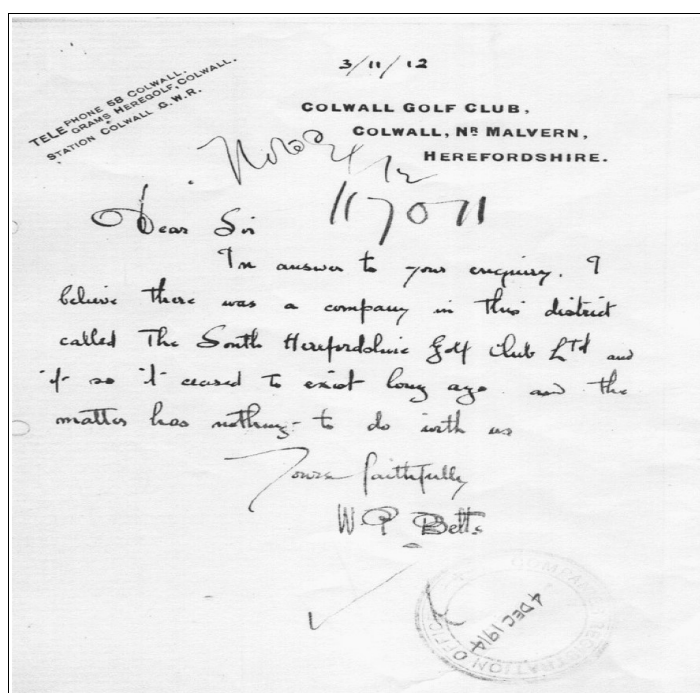 3/11/12
TELEPHONE 5B COLWALL.
TELEGRAMS HEREGOLF, COLWALL.
STATION COLWALL G.W.R.
COLWALL GOLF CLUB,
COLWALL, NR MALVERN,
HEREFORDSHIRE.
117071
Dear Sir
In answer to your enquiry. I
believe there was a company in this district
called The South Herefordshire Golf Club Ltd and
if so it ceased to exist long ago and the
matter has nothing to do with us
Yours faithfully
W P Betts
COMPANIES REGISTRATION OFFICE
4 DEC 1914